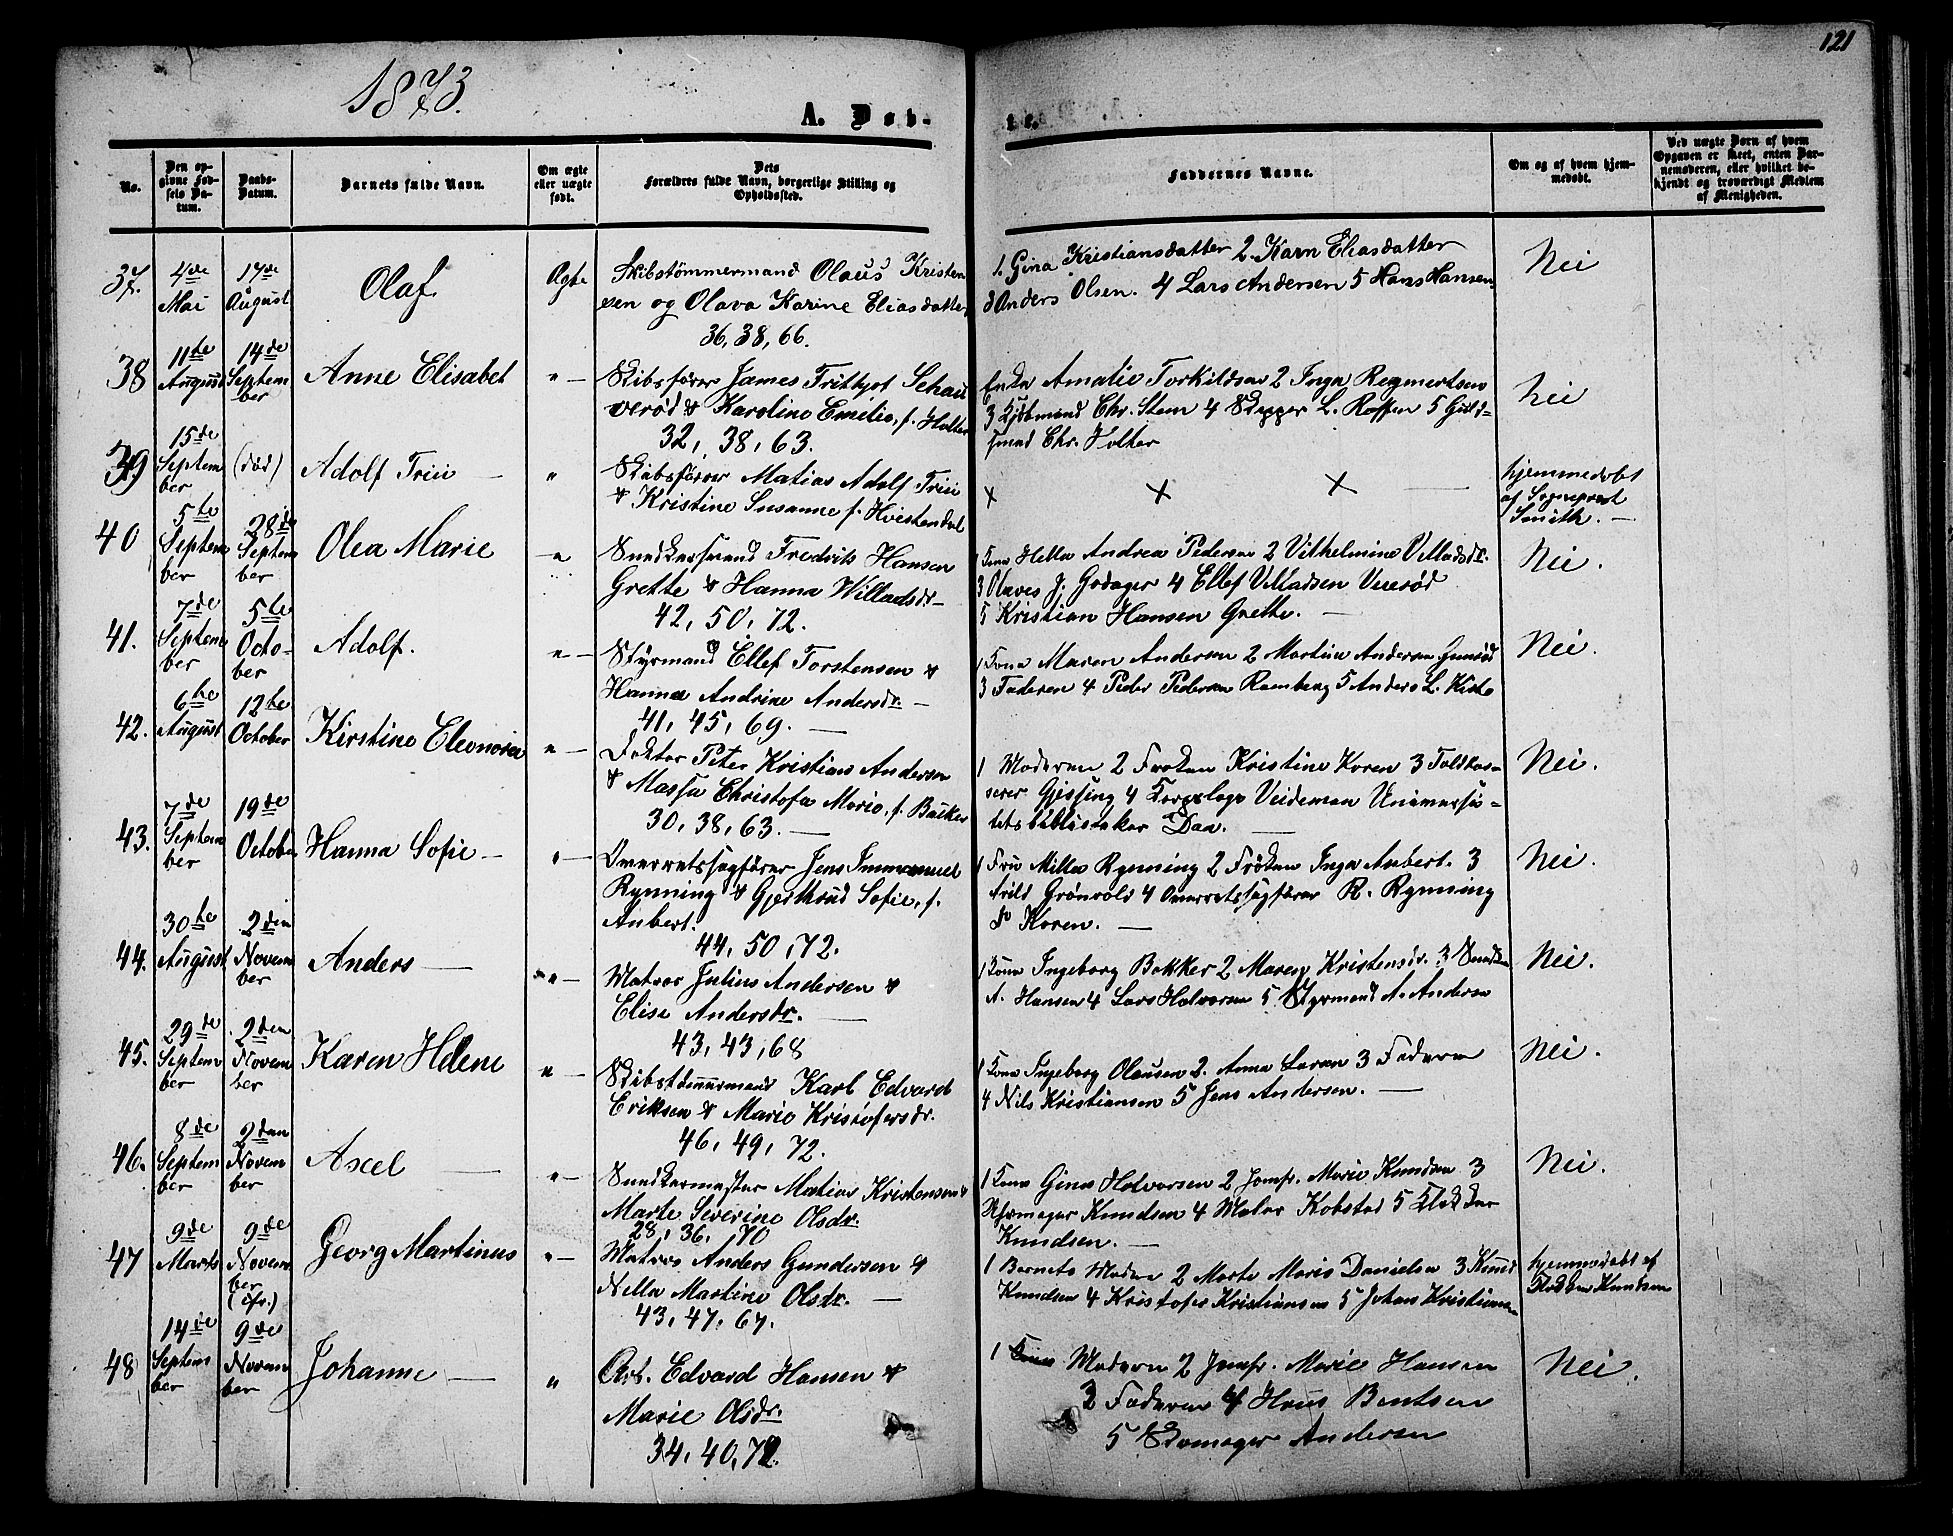 121
1873.
A. Døb-
te.
No.
Den op-
givne Fød-
sels Da-
tum.
Daabs-
Datum.
Barnets fulde Navn.
Om ægte
eller uægte
født.
Dets
Forældres fulde Navn, borgerlige Stilling og
Opholdssted.
Faddernes Navne.
Om og af hvem hjem-
medøbt.
Ved uægte Børn af hvem
Opgaven er skeet, enten Bar-
nemoderen, eller hvilket be-
kjendt og troværdigt Medlem
af Menigheden.
37. 4de Mai
17de August
Olaf.
Ægte
Skibstømmermand Olaus Kristen
sen og Olava Karine Eliasdatter
36, 38, 66.
1. Gina Kristiansdatter 2. Karn Eliasdatter
3 Anders Olsen. 4 Lars Andersen 5 Hans Hansen
Nei
38 11te August
14de Septem
ber
Anne Elisabet
" —
Skibsfører James Frithjof Schau
verød & Karoline Emilie, f. Holter
32, 38, 63.
Enke Amalie Torkildsen 2 Inga Regmertsen
3 Kjøbmand Chr. Steen 4 Skipper L. Roffen 5 Guld-
smed Chr. Holter
Nei
39 15de Septem
ber
(død)
Adolf Friis —
"
Skibsfører Matias Adolf Friis
& Kristine Susanne f. Hvistendal
x x x —
hjemmedøbt
af Sogneprest
Smith. —
40 5te Septem
ber
28de Septem
ber
Olea Marie
— "
Snedkersvend Fredrik Hansen
Grette & Hanna Willadsdr —
42, 50, 72.
1 Kone Helle Andrea Pedersen 2 Vilhelmine Villadsdr.
3 Olaves J. Godager 4 Ellef Villadsen Vuerød
5 Kristian Hansen Grette. —
Nei.
41. 7de Septem
ber
5te Octo-
ber
Adolf.
" —
Styrmand Ellef Torstensen &
Hanna Andrine Andersdr. —
41, 45, 69. —
1 Kone Maren Andersen 2 Martine Andersen
3 Faderen 4 Peder Pedersen Ramberg 5 Anders L. Kiste
Nei.
42. 6te August
12te October
Kirstine Eleonora
" —
Doktor Peter Kristian Andersen
& Massa Christofa Marie, f. Bakker
30, 38, 63. —
1 Moderen 2 Frøken Kristine Koren 3 Toldkas-
serer Gjessing 4 Korpslæge Veideman Universi-
tetsbibliotekar Daa. —
Nei.
43. 7de Septem
ber
19de October
Hanna Sofie —
" —
Overretssagfører Jens Immanuel
Rynning & Gjertrud Sofie, f.
Aubert.
44, 50, 72.
1 Fru Milla Rynning 2 Frøken Inga Aubert. 3
Grønvold 4 Overretssagfører R. Rynning
Koren. —
Nei.
44. 30te August
2den Novem
ber
Anders —
" —
Matros Julius Andersen &
Elise Andersdr. —
43, 43, 68
1 Kone Ingeborg Bakker 2 Maren Kristensdr. 3 Snedker
A. Hansen 4 Lars Halvorsen 5 Styrmand A. Andersen
Nei.
45. 29de Septem
ber
2den Novem
ber
Karen Helene
" —
Skibstømmermand Karl Edvard
Eriksen & Marie Kristofersdr.
46, 49, 72.
1 Kone Ingeborg Olausen 2. Anna Larsen 3 Faderen
4 Nils Kristiansen 5 Jens Andersen. —
Nei.
46. 8de Septem
ber
2den Novem
ber
Axel —
" —
Snedkermester Matias Kristensen &
Marte Severine Olsdr.
28, 36, 70
1 Kone Gina Halvorsen 2 Jomfr. Marie Knudsen 3
Uhrmager Knudsen 4 Maler Kobstad 5 Klokker
Knudsen. —
Nei.
47 9de Marts
9de Novem
ber
(cfr.)
Georg Martinus
" —
Matros Anders Gundersen &
Nilla Martine Olsdr. —
43, 47, 67.
1 Barnets Moder 2 Marte Marie Danielsen 3 Knud
Knudsen 4 Kristofer Kristiansen 5 Johan Kristiansen
hjemmedøbt af
Klokker Knudsen
48 14de Septem
ber
9de Novem
ber
Johanne —
"
Arb. Edvard Hansen &
Marie Olsdr.
34, 40, 72.
1 Moderen 2 Jomfr. Marie Hansen
3 Faderen 4 Hans Bentsen
5 Skomager Andersen
Nei.